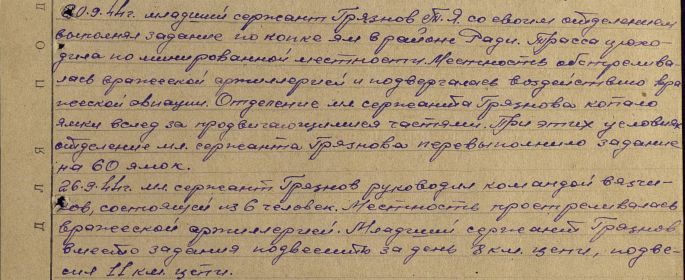 20.9.44г. младший сержант Грязнов Т.Я. со своим отделением
выполнял задание по копке ям в районе Гади. Трасса прохо-
дила по минированной местности. Местность обстрелива-
лась вражеской артиллерией и подвергалась воздействию вра-
жеской авиации. Отделение мл. сержанта Грязнова копало
ямки вслед за продвигающимися частями. При этих условиях
отделение мл. сержанта Грязнова перевыполнило задание
на 60 ямок.
26.9.44г. мл. сержант Грязнов руководил командой вязчи-
ков, состоящей из 6 человек. Местность простреливалась
вражеской артиллерией. Младший сержант Грязнов
вместо задания подвесить за день 8 км. цепи, подве-
сил 11 км. цепи.
Д Л Я П О Д